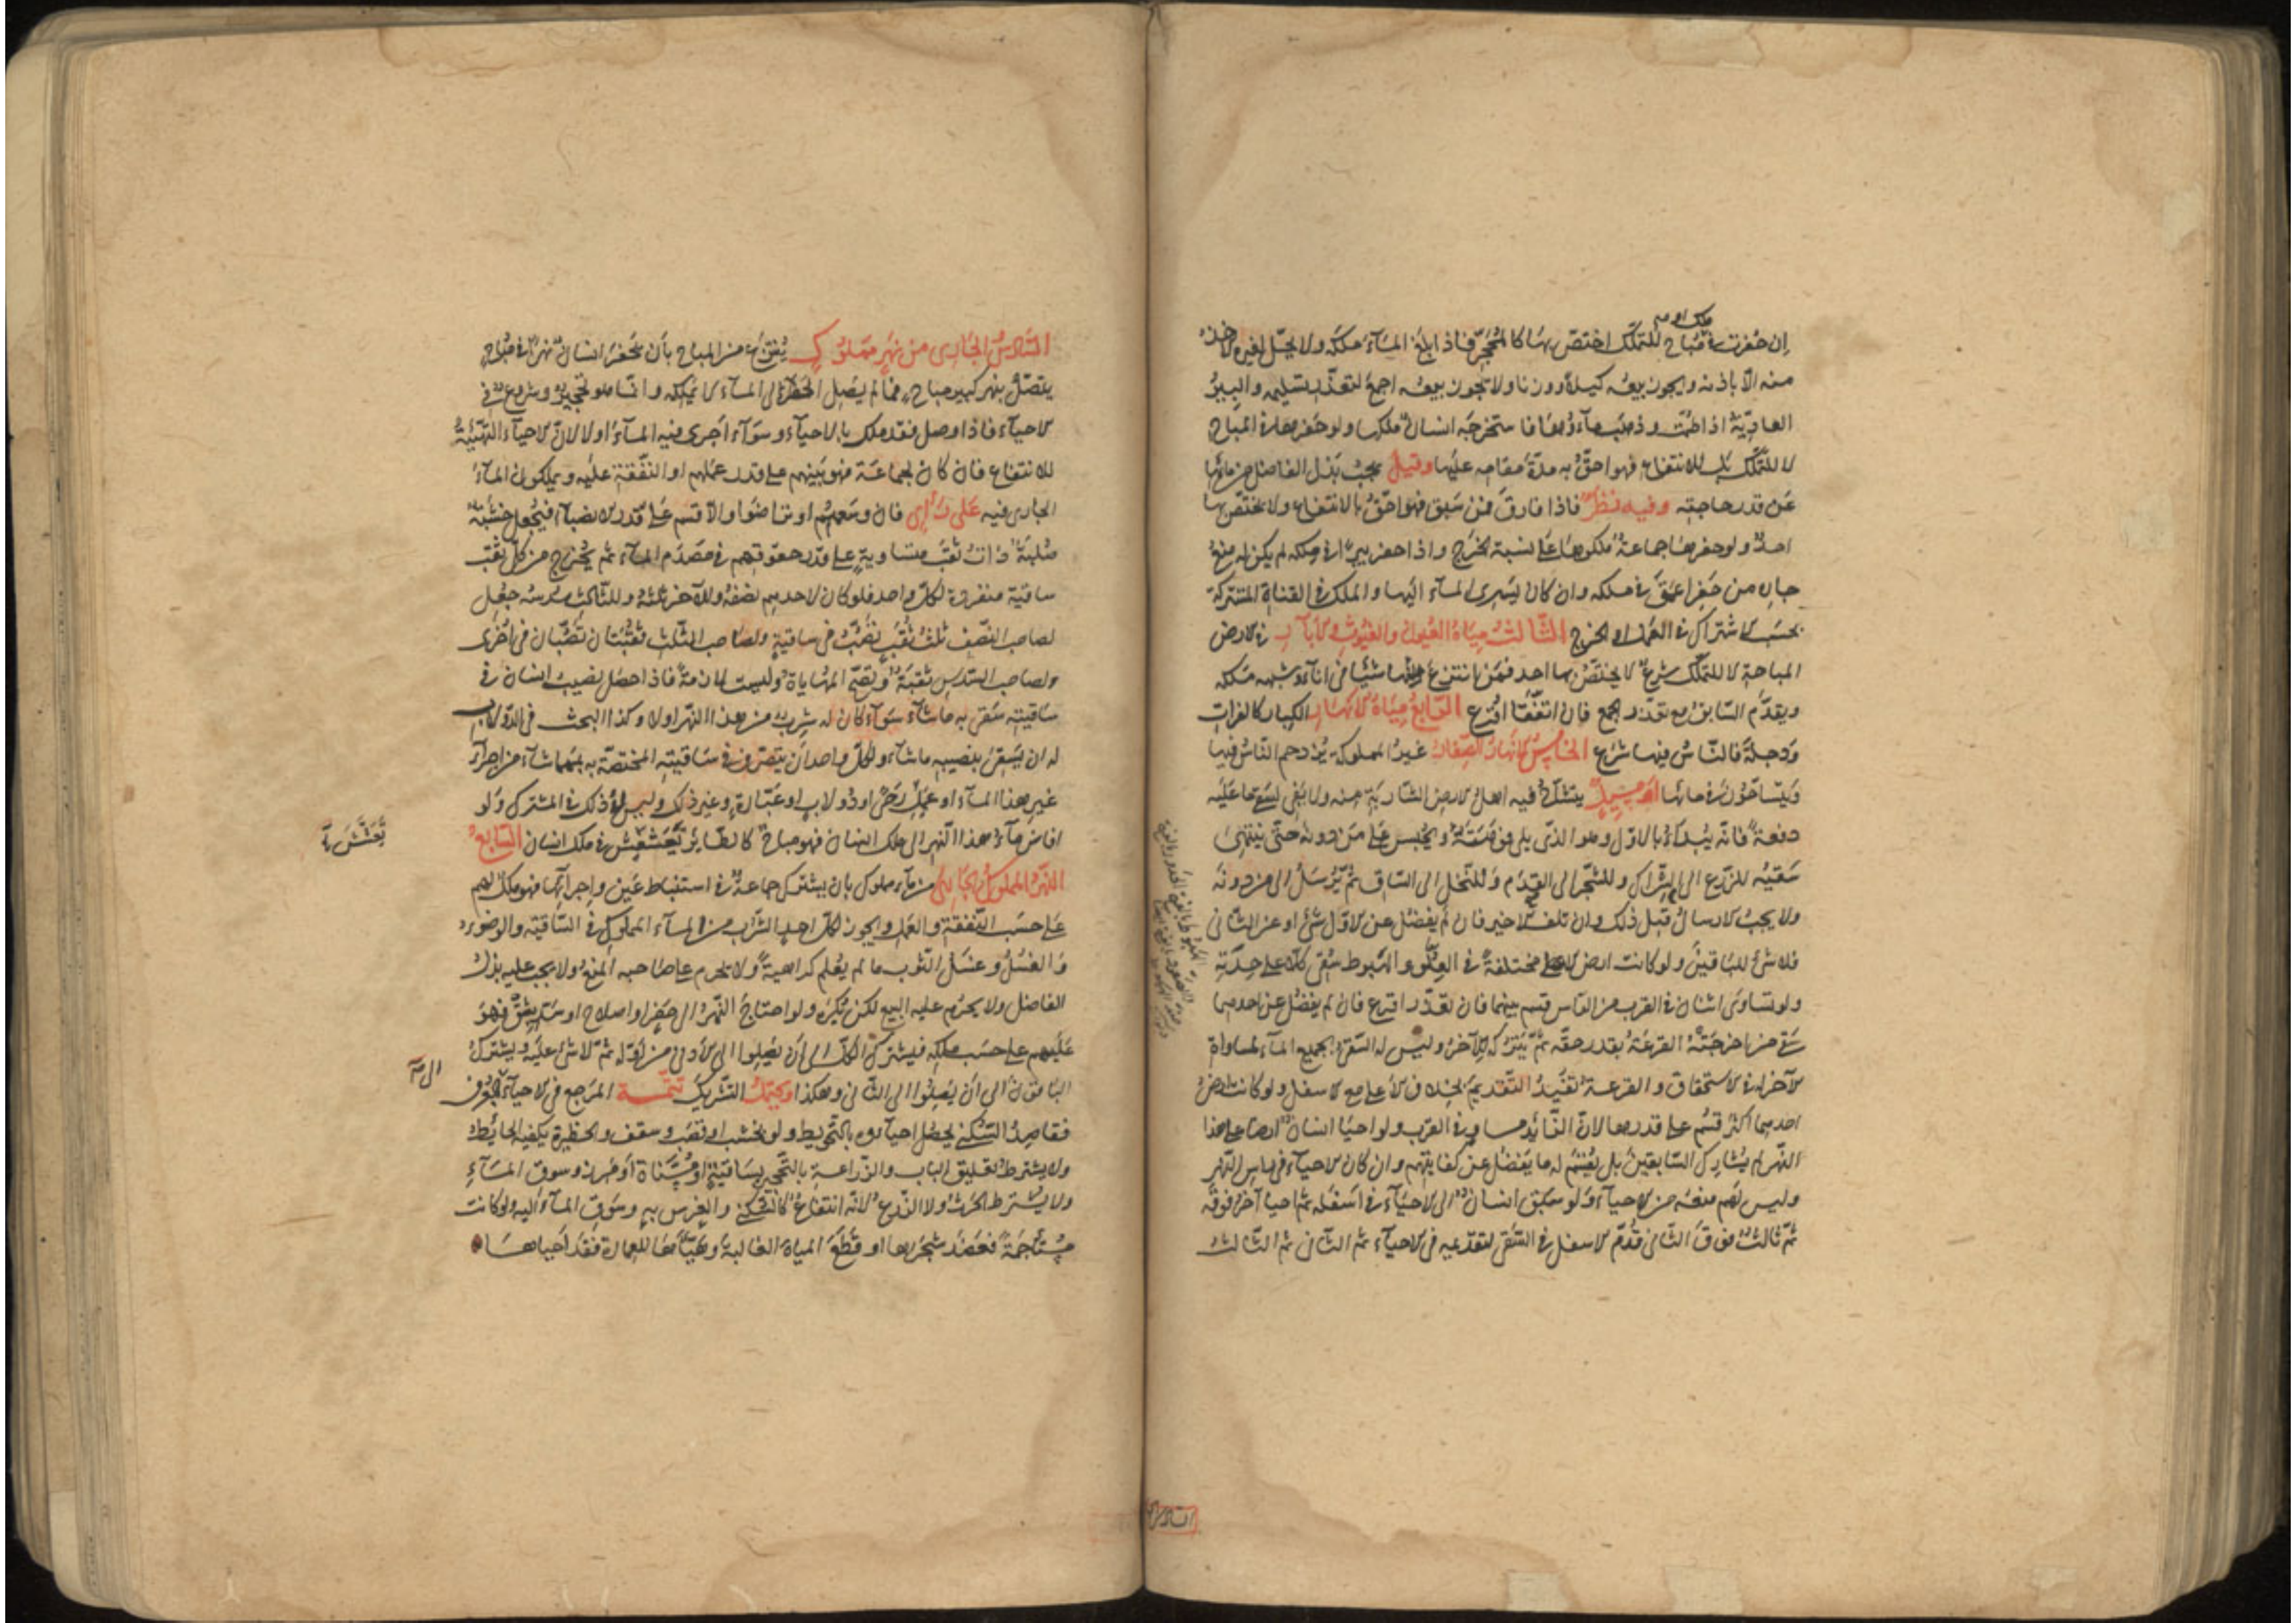 ملك او مه
إن حفرت في مباح للتملّك اختصّ بها كالمحجر فاذا بلغ المآء ملكه ولا يحلّ لغيره الاخذ
منه الّا باذنه ويجوز بيعه كيلاً ووزنا ولا يجوز بيعه اجمع لتعذّر تسليمه والبير
العاديّة اذا طمّت وذهب مآءوها فاستخرجه انسان ملكها ولو حفرها في المباح
لا للتملّك بل للانتفاع فهو احقّ به مدّة مقامه عليها وقيل يجب بذل الفاضل من مائها
عن قدر حاجته وفيه نظر فاذا فارق فمن سبق فهو احقّ بالانتفاع ولا يختصّ بها
احد ولو حفرها جماعة ملكوها على نسبة الخرج واذا حفر بيرا في ملكه لم يكن له منع
جاره من حفر اعمق في ملكه وان كان يسرى المآء اليها والملك في القناة المشتركة
بحسب الاشتراك في العمل او الخرج الثالث مياه العيون والغيوث والآبار في الارض
المباحة لا للتملّك شرع لا يختصّ بها احد فمن انتزع منها شيئا في انآء وشبهه ملكه
ويقدّم السّابق مع تعذّر الجمع فان اتّفقا اقرع الرّابع مياه الانهار الكبار كالفرات
ودجلة فالنّاس فيها شرع الخامس الانهار الصّغار غير المملوكة يزدحم النّاس فيها
ويتشاحّون في مائها او مسيل يتشاحّ فيه اهل الارض الشّاربة منه ولا يفى لسقى ما عليه
دفعة فانّه يبدأ بالاوّل وهو الذى يلى فوهته ويحبس على من دونه حتّى ينتهى
سقيه للزّرع الى الشّراك وللشّجر الى القدم وللنّخل الى السّاق ثمّ يرسل الى من دونه
ولا يجب الارسال قبل ذلك وان تلف الاخير فان لم يفضل عن الاوّل شئ او عن الثّانى
فلا شئ للباقين ولو كانت ارض الاعلى مختلفة في العلوّ والهبوط سقى كلّا على حدته
ولو تساوى اثنان في القرب من الرّاس قسم بينهما فان تعذّر اقرع فان لم يفضل عن احدهما
سقى من اخرجته القرعة بقدر حقّه ثمّ يتركه للآخر وليس له السّقى بجميع المآء لمساواة
الآخر له في الاستحقاق والقرعة تفيد التّقديم بخلاف الاعلى مع الاسفل ولو كانت ارض
احدهما اكثر قسم على قدرها لانّ الزّائد مساو في القرب ولو احيا انسان ارضا على هذا
النّهر لم يشارك السّابقين بل يقسم له ما يفضل عن كفايتهم وان كان الاحيآء في راس النّهر
وليس لهم منعه من الاحيآء ولو سبق انسان الى الاحيآء في اسفله ثمّ احيا آخر فوقه
ثمّ ثالث فوق الثّانى قدّم الاسفل في السّقى لتقديمه في الاحيآء ثمّ الثّانى ثمّ الثّالث
السّادس
السّادس الجارى من نهر مملوك ينتزع من المباح بأن يحفر انسان نهرا في مباح
يتّصل بنهر كبير مباح فما لم يصل الحفر الى المآء لا يملكه وانّما هو تحجير وشروع في
الاحيآء فاذا وصل فقد ملك بالاحيآء وسوآء اجرى فيه المآء او لا لانّ الاحيآء التّهيئة
للانتفاع فان كان لجماعة فهو بينهم على قدر عملهم او النّفقة عليه ويملكون المآء
الجارى فيه على رأى فان وسعهم او تراضوا والّا قسم على قدر الانصبآء فيجعل خشبة
صلبة ذات ثقب متساوية على قدر حقوقهم في مصدم المآء ثم يخرج من كلّ ثقب
ساقية منفردة لكلّ واحد فلو كان لاحدهم نصفه وللآخر ثلثه وللثّالث سدسه جعل
لصاحب النّصف ثلث ثقب تصبّ في ساقية ولصاحب الثّلث ثقبتان تصبّان في اخرى
ولصاحب السّدس ثقبة وتصحّ المهاياة وليست لازمة فاذا حصل نصيب انسان في
ساقيته سقى به ما شآء سوآء كان له شرب من هذا النّهر او لا وكذا البحث في الدّولاب
له ان يسقى بنصيبه ما شآء ولكلّ واحد أن يتصرّف في ساقيته المختصّة به بمهما شآء من اجرآء
غير هذا المآء او عمل رحى او دولاب او عبّارة وغير ذلك وليس له ذلك في المشترك ولو
افاض مآء هذا النّهر الى ملك انسان فهو مباح كالطّائر يعشّش في ملك انسان السّابع
تعشّش مة
النّهر المملوك الجارى من مآء مملوك بان يشترك جماعة في استنباط عين واجرآئها فهو ملك لهم
على حسب النّفقة والعمل ويجوز لكلّ احد الشّرب من المآء المملوك في السّاقية والوضوء
والغسل وغسل الثّوب ما لم يعلم كراهية ولا يحرم على صاحبه المنع ولا يجب عليه بذل
الفاضل ولا يحرم عليه البيع لكن يكره ولو احتاج النّهر الى حفر او اصلاح او سدّ بثق فهو
عليهم على حسب ملكهم فيشترك الكلّ الى أن يصلوا الى الادنى من اوّله ثمّ لا شئ عليه ويشترك
الباقون الى أن يصلوا الى الثّانى وهكذا ويحتمل التّشريك تتمّة المرجع في الاحيآء العرف
الى مة
فقاصد السّكنى يحصل احياؤه بالتّحويط ولو بخشب او قصب وسقف والحظيرة يكفيه الحائط
ولا يشترط تعليق الباب والزّراعة بالتّحجير بساقية او مسنّاة او مرز وسوق المآء
ولا يشترط الحرث ولا الزّرع لانّه انتفاع كالسّكنى والغرس به وسوق المآء اليه ولو كانت
مستأجمة فعضد شجرها او قطع المياه الغالبة وهيّأها للعمارة فقد احياها